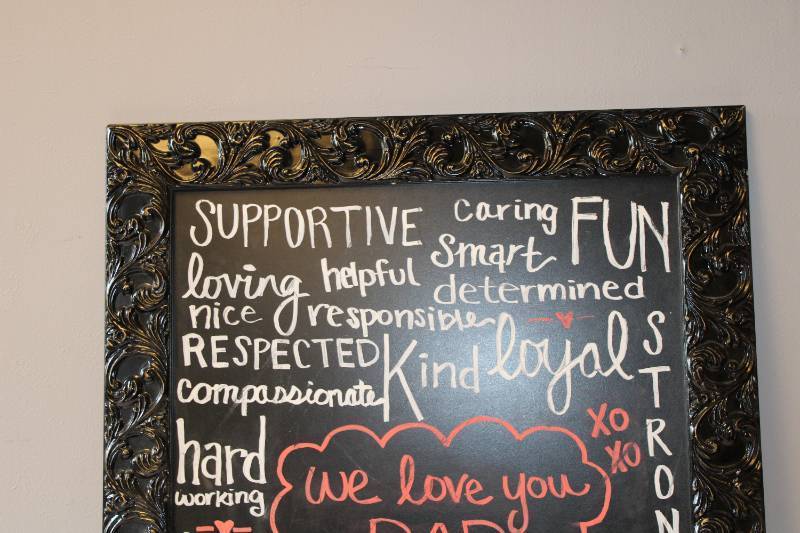 SUPPORTIVE
caring
FUN
smart
loving
helpful
determined
nice
responsible
RESPECTED
Kind
loyal
STRON
compassionate
hard
working
XO
XO
we love you
DAD